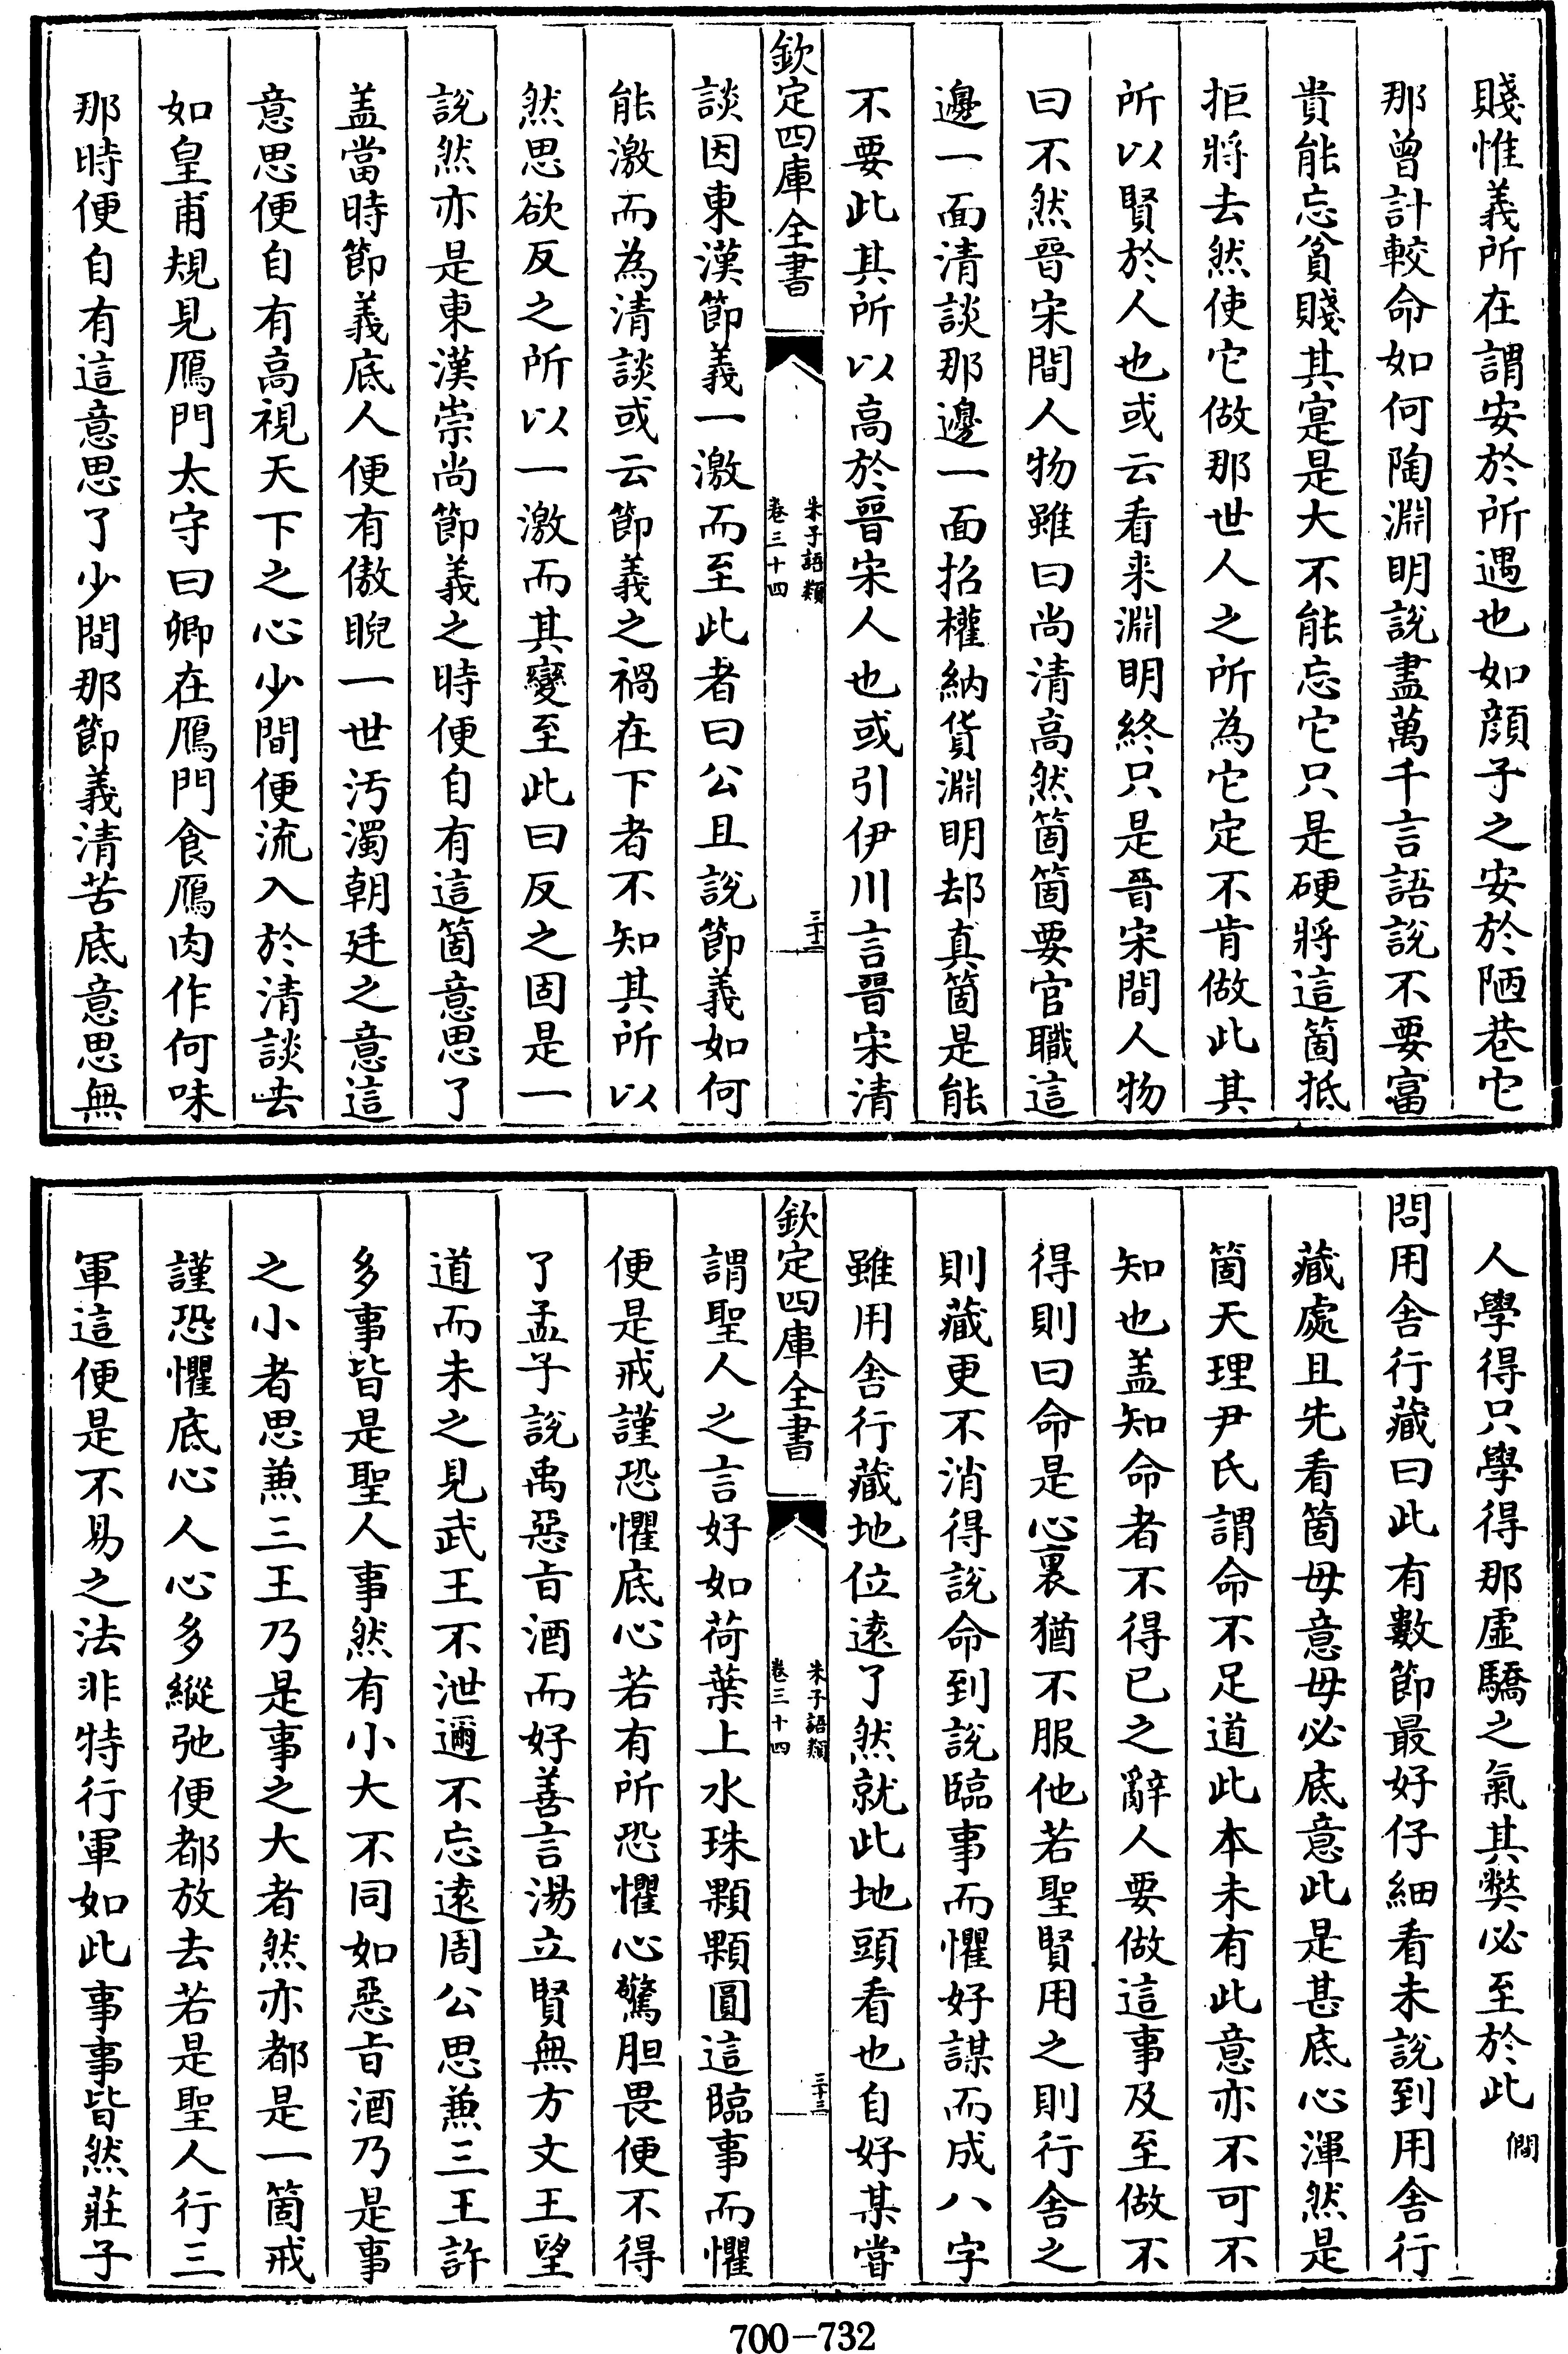 賤惟義所在謂安於所遇也如顔子之安於陋巷它
那曾計較命如何陶淵明說盡萬千言語說不要富
貴能忘貧賤其寔是大不能忘它只是硬將這箇抵
拒將去然使它做那世人之所為它定不肯做此其
所以賢於人也或云看来淵明終只是晉宋間人物
曰不然晉宋間人物雖曰尚清高然箇箇要官職這
邊一面清談那邊一面招權納貨淵明却真箇是能
不要此其所以高於晉宋人也或引伊川言晉宋清
欽定四庫全書
朱子語類
卷三十四
三十二
談因東漢節義一激而至此者曰公且說節義如何
能激而為清談或云節義之禍在下者不知其所以
然思欲反之所以一激而其變至此曰反之固是一
說然亦是東漢崇尚節義之時便自有這箇意思了
盖當時節義底人便有傲睨一世汚濁朝廷之意這
意思便自有高視天下之心少間便流入於清談去
如皇甫規見鴈門太守曰卿在鴈門食鴈肉作何味
那時便自有這意思了少間那節義清苦底意思無
人學得只學得那虛驕之氣其弊必至於此 僩
問用舍行藏曰此有數節最好仔細看未說到用舍行
藏處且先看箇毋意毋必底意此是甚底心渾然是
箇天理尹氏謂命不足道此本未有此意亦不可不
知也盖知命者不得已之辭人要做這事及至做不
得則曰命是心裏猶不服他若聖賢用之則行舍之
則藏更不消得說命到說臨事而懼好謀而成八字
雖用舍行藏地位遠了然就此地頭看也自好某嘗
欽定四庫全書
朱子語類
卷三十四
三十三
謂聖人之言好如荷葉上水珠顆顆圓這臨事而懼
便是戒謹恐懼底心若有所恐懼心驚胆畏便不得
了孟子說禹惡旨酒而好善言湯立賢無方文王望
道而未之見武王不泄邇不忘遠周公思兼三王許
多事皆是聖人事然有小大不同如惡旨酒乃是事
之小者思兼三王乃是事之大者然亦都是一箇戒
謹恐懼底心人心多縱弛便都放去若是聖人行三
軍這便是不易之法非特行軍如此事事皆然莊子
700-732